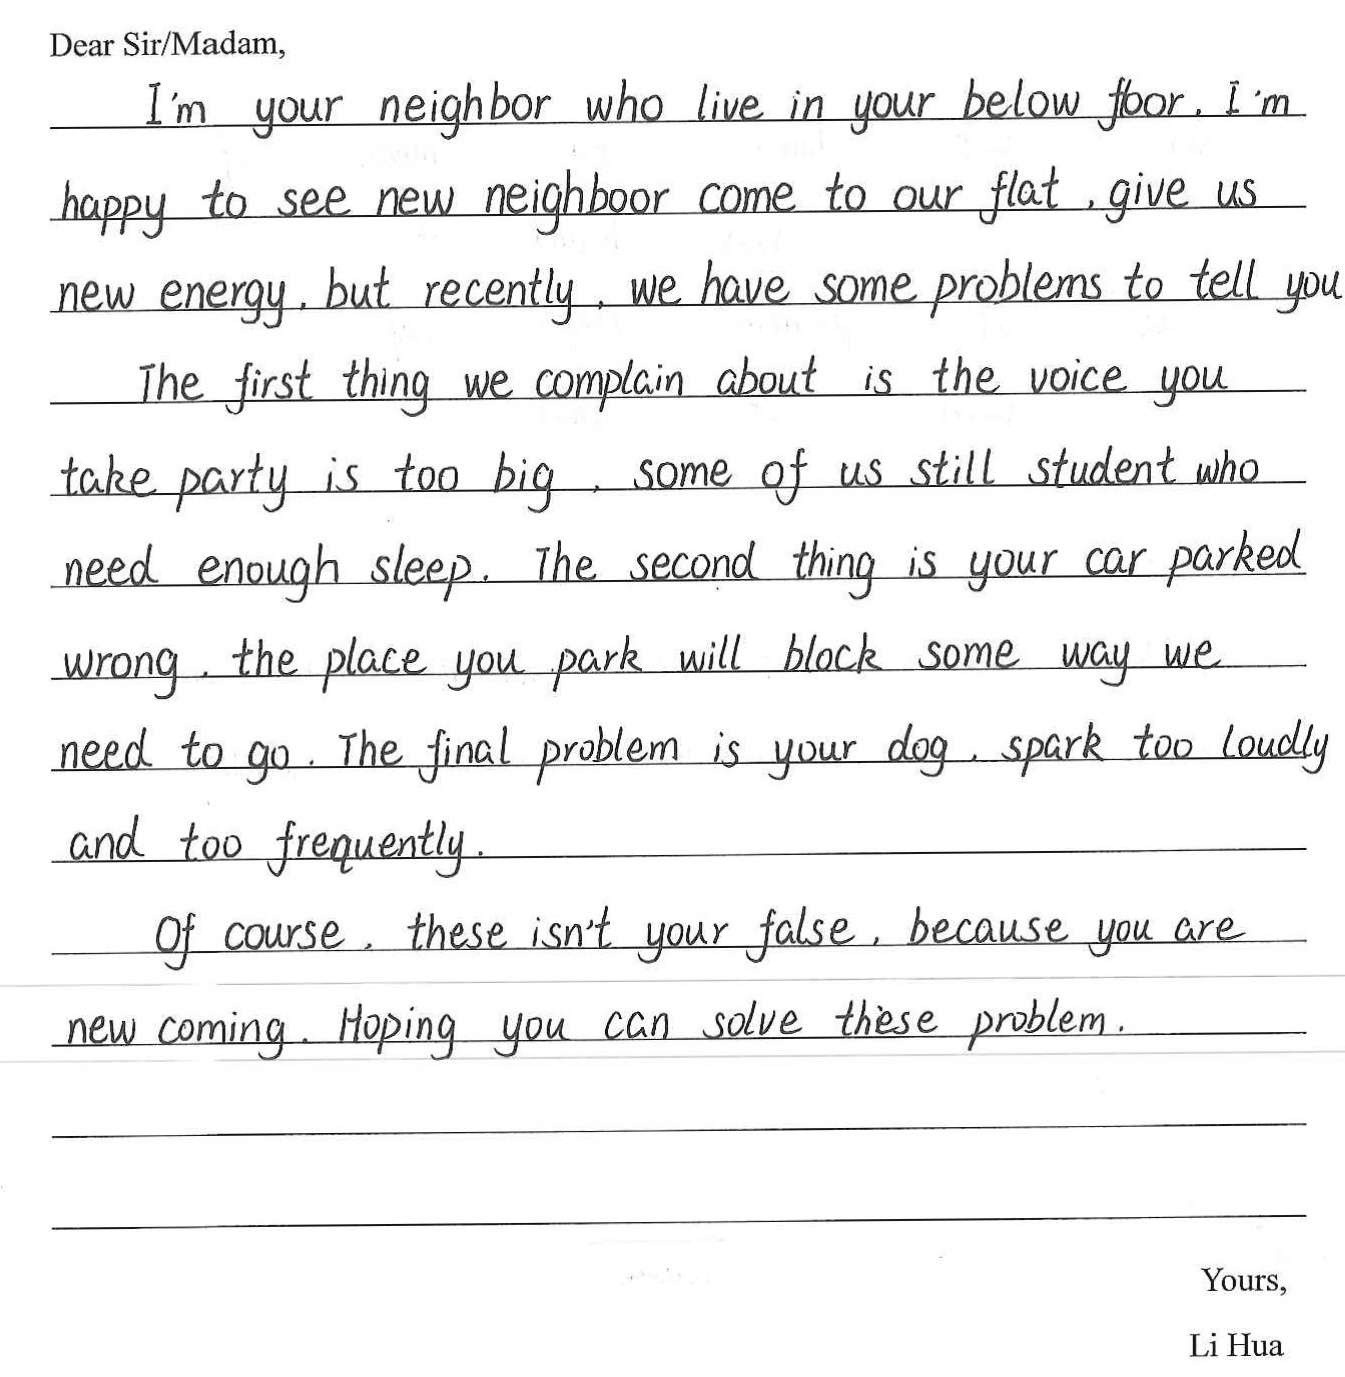 Dear Sir/Madam,
I'm your neighbor who live in your below floor. I'm
happy to see new neighboor come to our flat, give us
new energy, but recently, we have some problems to tell you
The first thing we complain about is the voice you
take party is too big, some of us still student who
need enough sleep. The second thing is your car parked
wrong, the place you park will block some way we
need to go. The final problem is your dog, spark too loudly
and too frequently.
Of course, these isn't your false, because you are
new coming. Hoping you can solve these problem.
Yours,
Li Hua